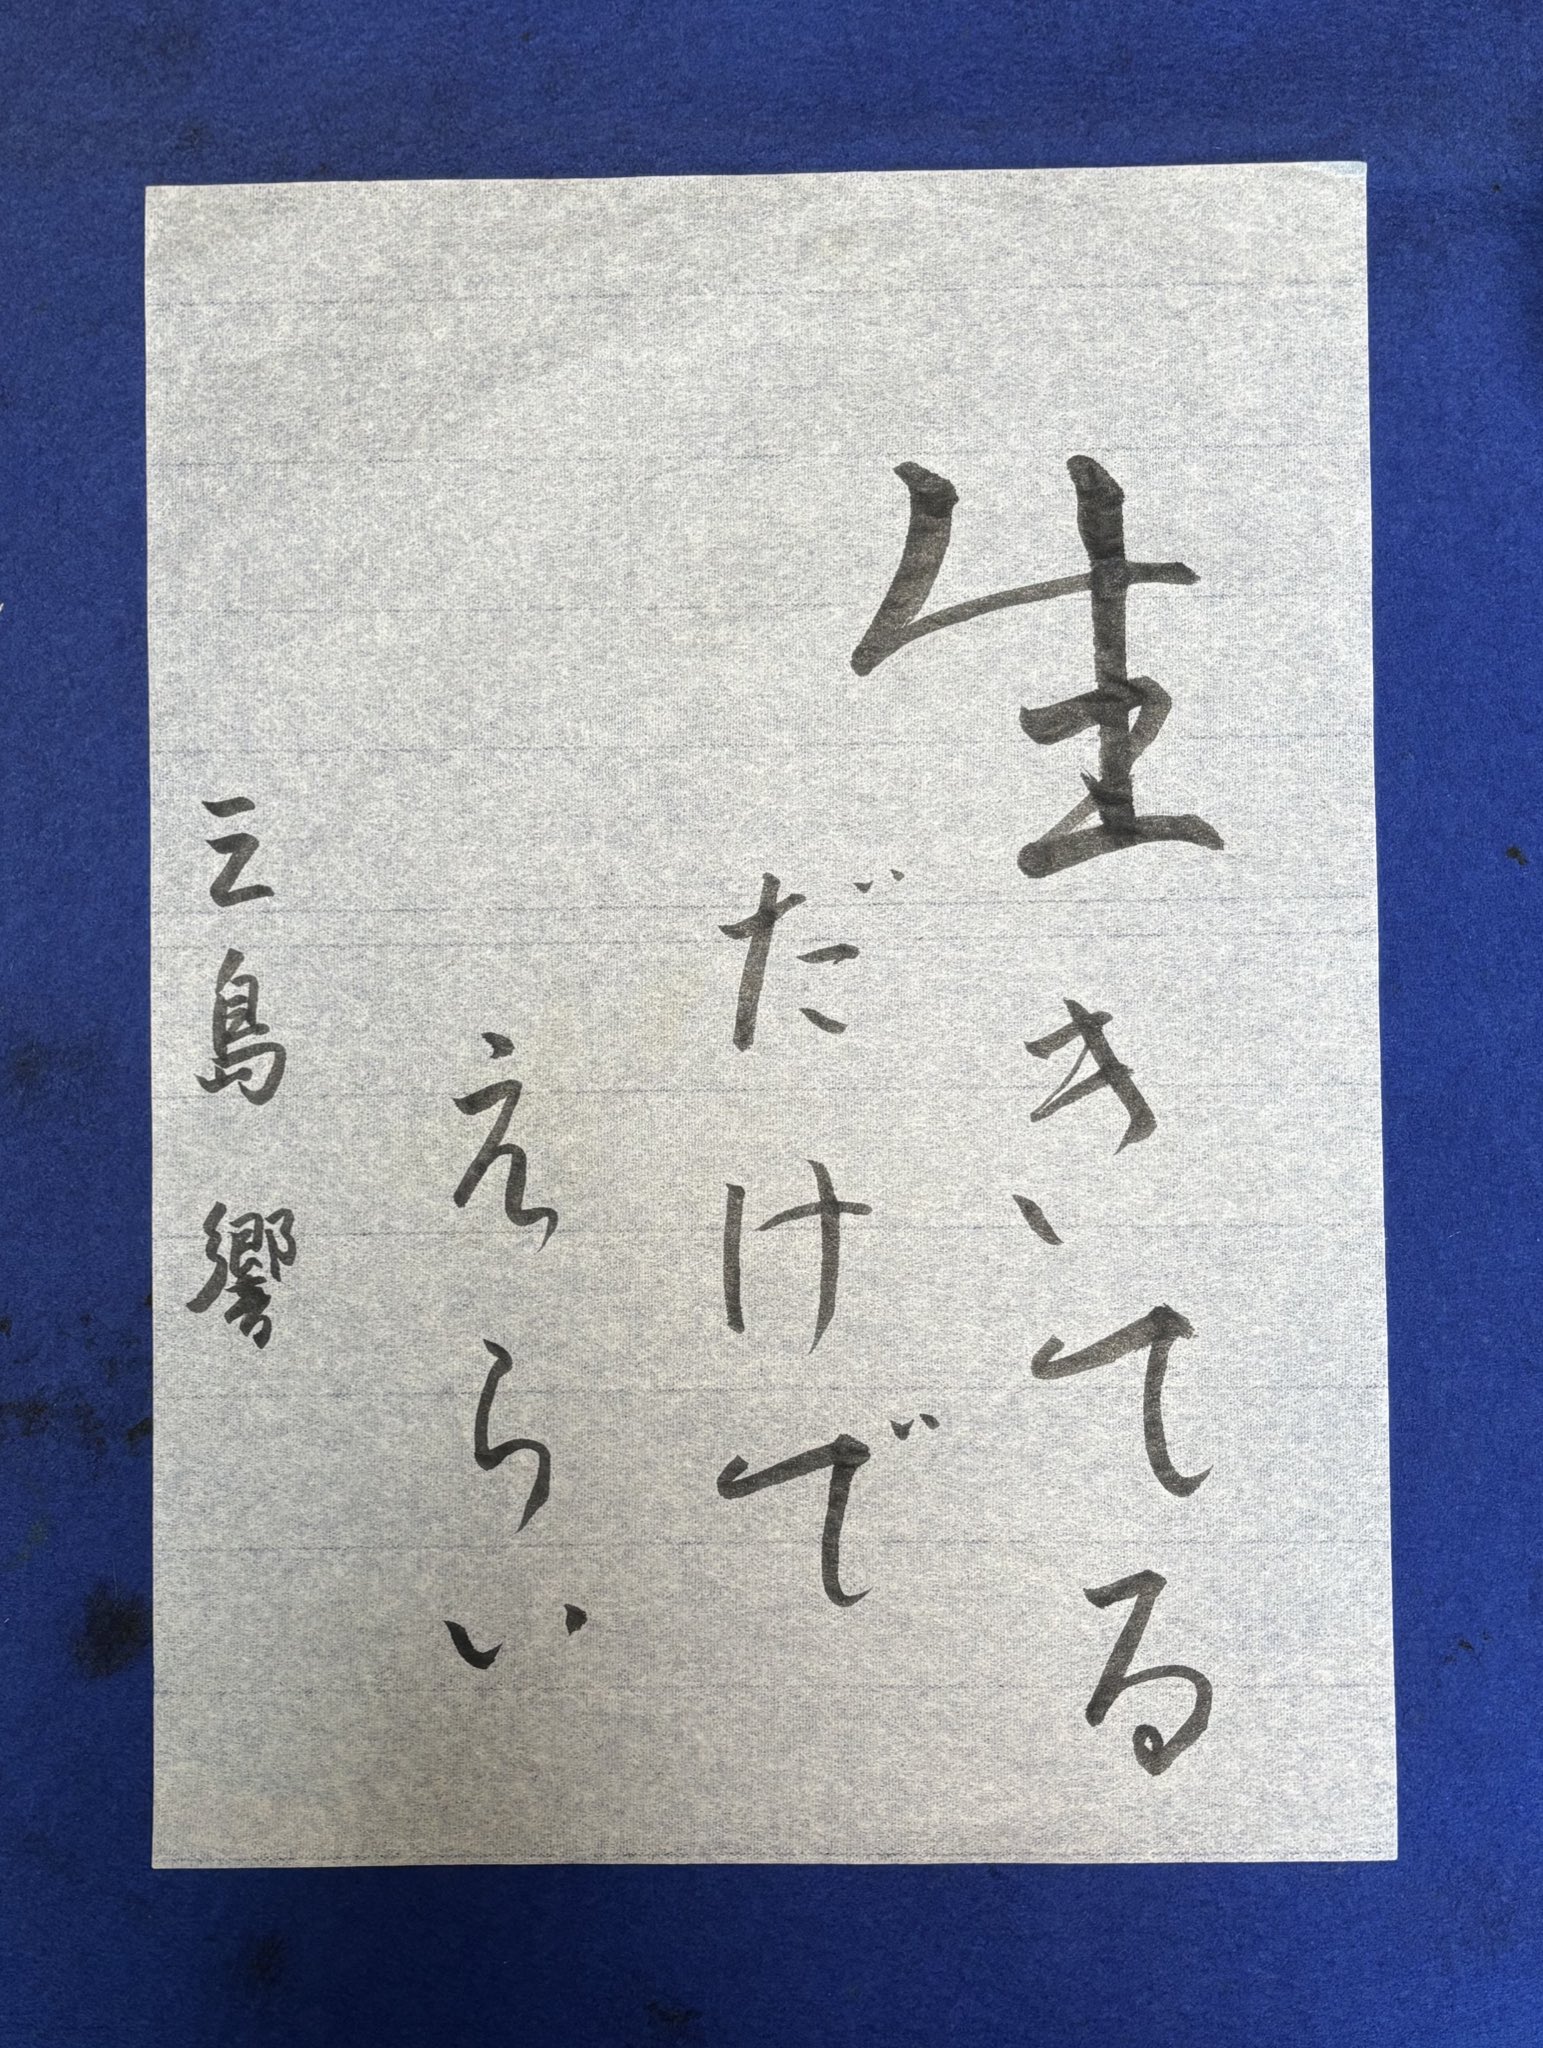 生きてる
だけで
えらい
三島響